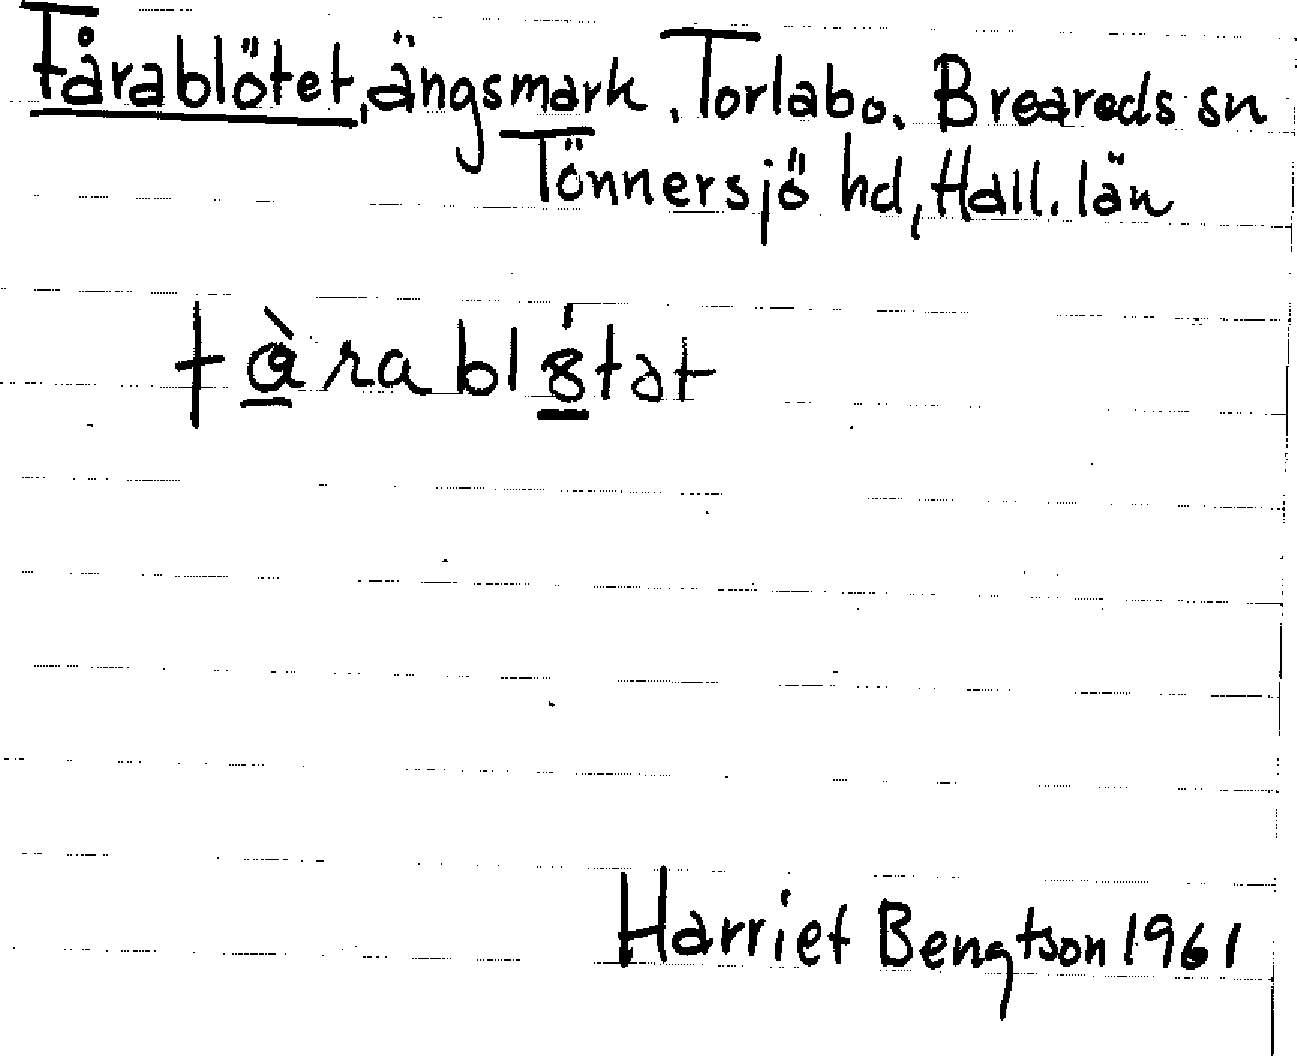 Fårablötet, ängsmark. Torlabo. Breareds sn
Tönnersjö hd, Hall. län
fàrabløtət
Harriet Bengtson 1961